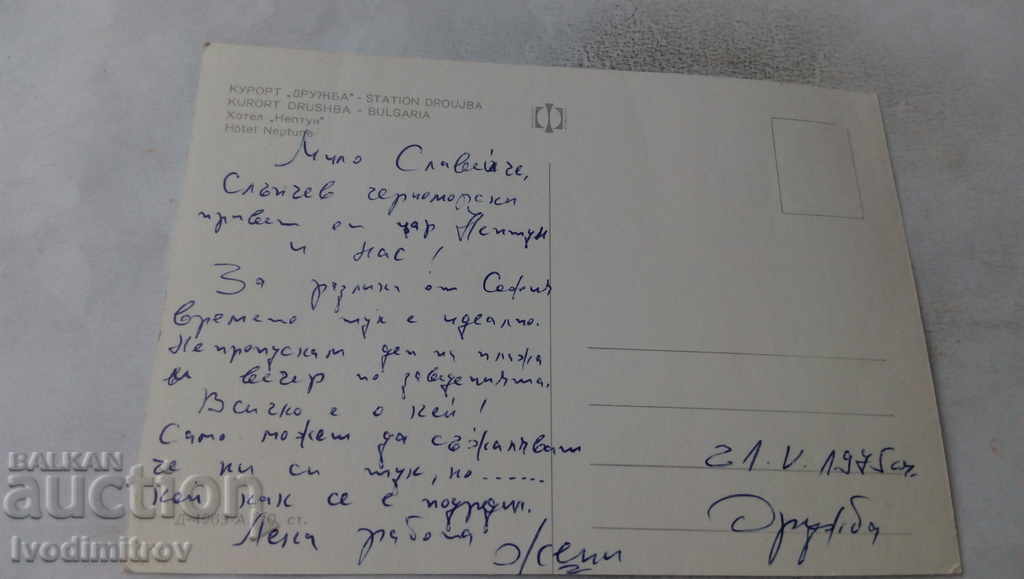 КУРОРТ „ДРУЖБА" - STATION DROUJBA
KURORT DRUSHBA - BULGARIA
Хотел „Нептун"
Hôtel Neptune
Мило Славейче,
Слънчев черноморски
привет от цар Нептун
и нас!
За разлика от София
времето тук е идеално.
Не пропускам ден на плажа
и вечер по заведенията.
Всичко е о кей!
Само можеш да съжаляваш
че ни си тук, но ......
кой как се е подредил.
Д-4963-А ст.
Лека работа
Жени
21.V.1975 г.
Дружба
BALKAN
auction
Ivodimitrov